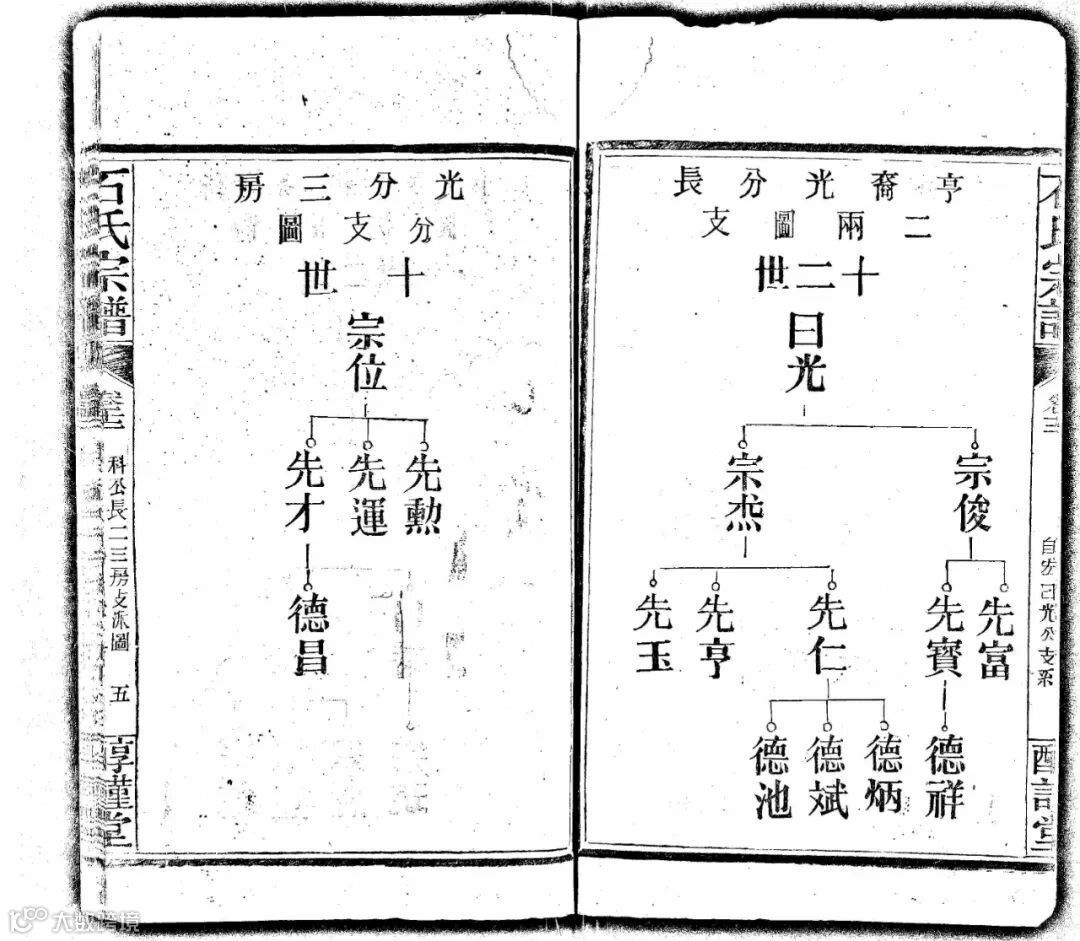 亨裔光分長
二兩圖支
十二世
曰光
宗俊
宗
先富
先寶
先仁
先亨
先玉
德祥
德炳
德斌
德池
卷三
光公支系
光分三房
分支圖
十世
宗位
先勳
先運
先才
德昌
石氏宗譜
卷三
科公長二三房支派圖
五
謹堂
大数跨境